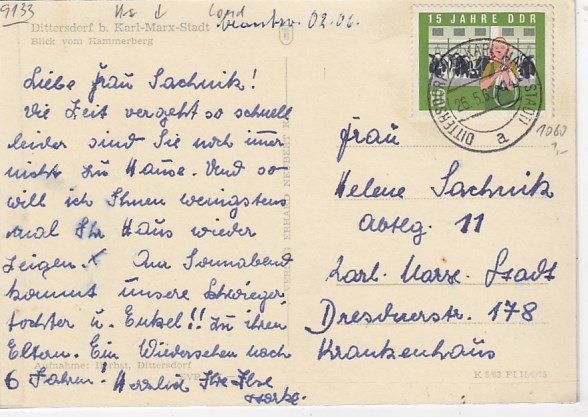 9133
Dittersdorf b. Karl-Marx-Stadt
Blick vom Hammerberg
02.06.
Liebe Frau Sachnik!
Die Zeit vergeht so schnell
leider sind Sie noch imer
nicht zu Hause. Und so
will ich Ihnen wenigstens
mal Ihr Haus wieder
zeigen. Am Sonnabend
kommt unsere Schwieger
tochter u. Enkel!! Zu ihren
Eltern. Ein Wiedersehen nach
6 Jahren! Herzlich Ihre Ilse
Aufnahme: Herbst, Dittersdorf
VERLAG ERHARD NEUBERT K
15 JAHRE DDR
DITTERSDORF
a
1060
1,-
Frau
Helene Sachnik
Abtlg. 11
Karl-Marx-Stadt
Dresdnerstr. 178
Krankenhaus